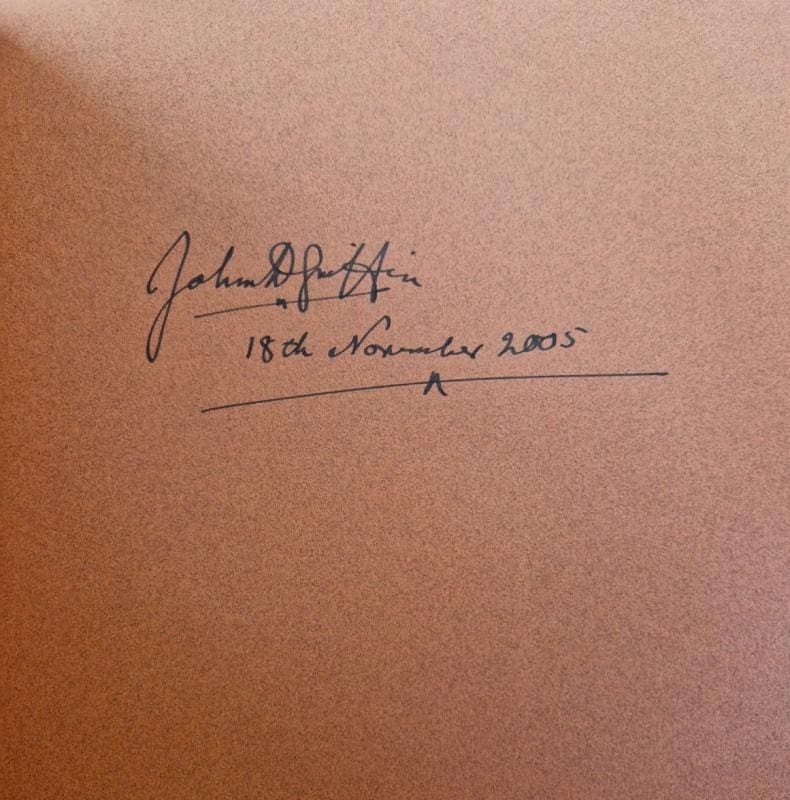 John D Griffin
18th November 2005